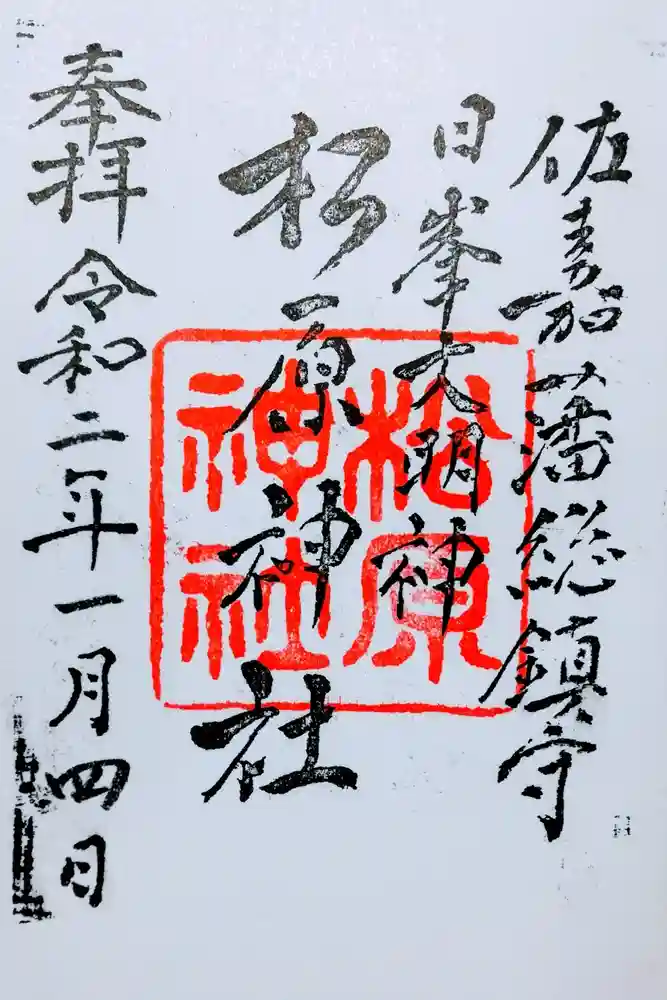 佐嘉藩総鎮守
日峯大明神
松原神社
松原
神社
奉拝 令和二年一月四日